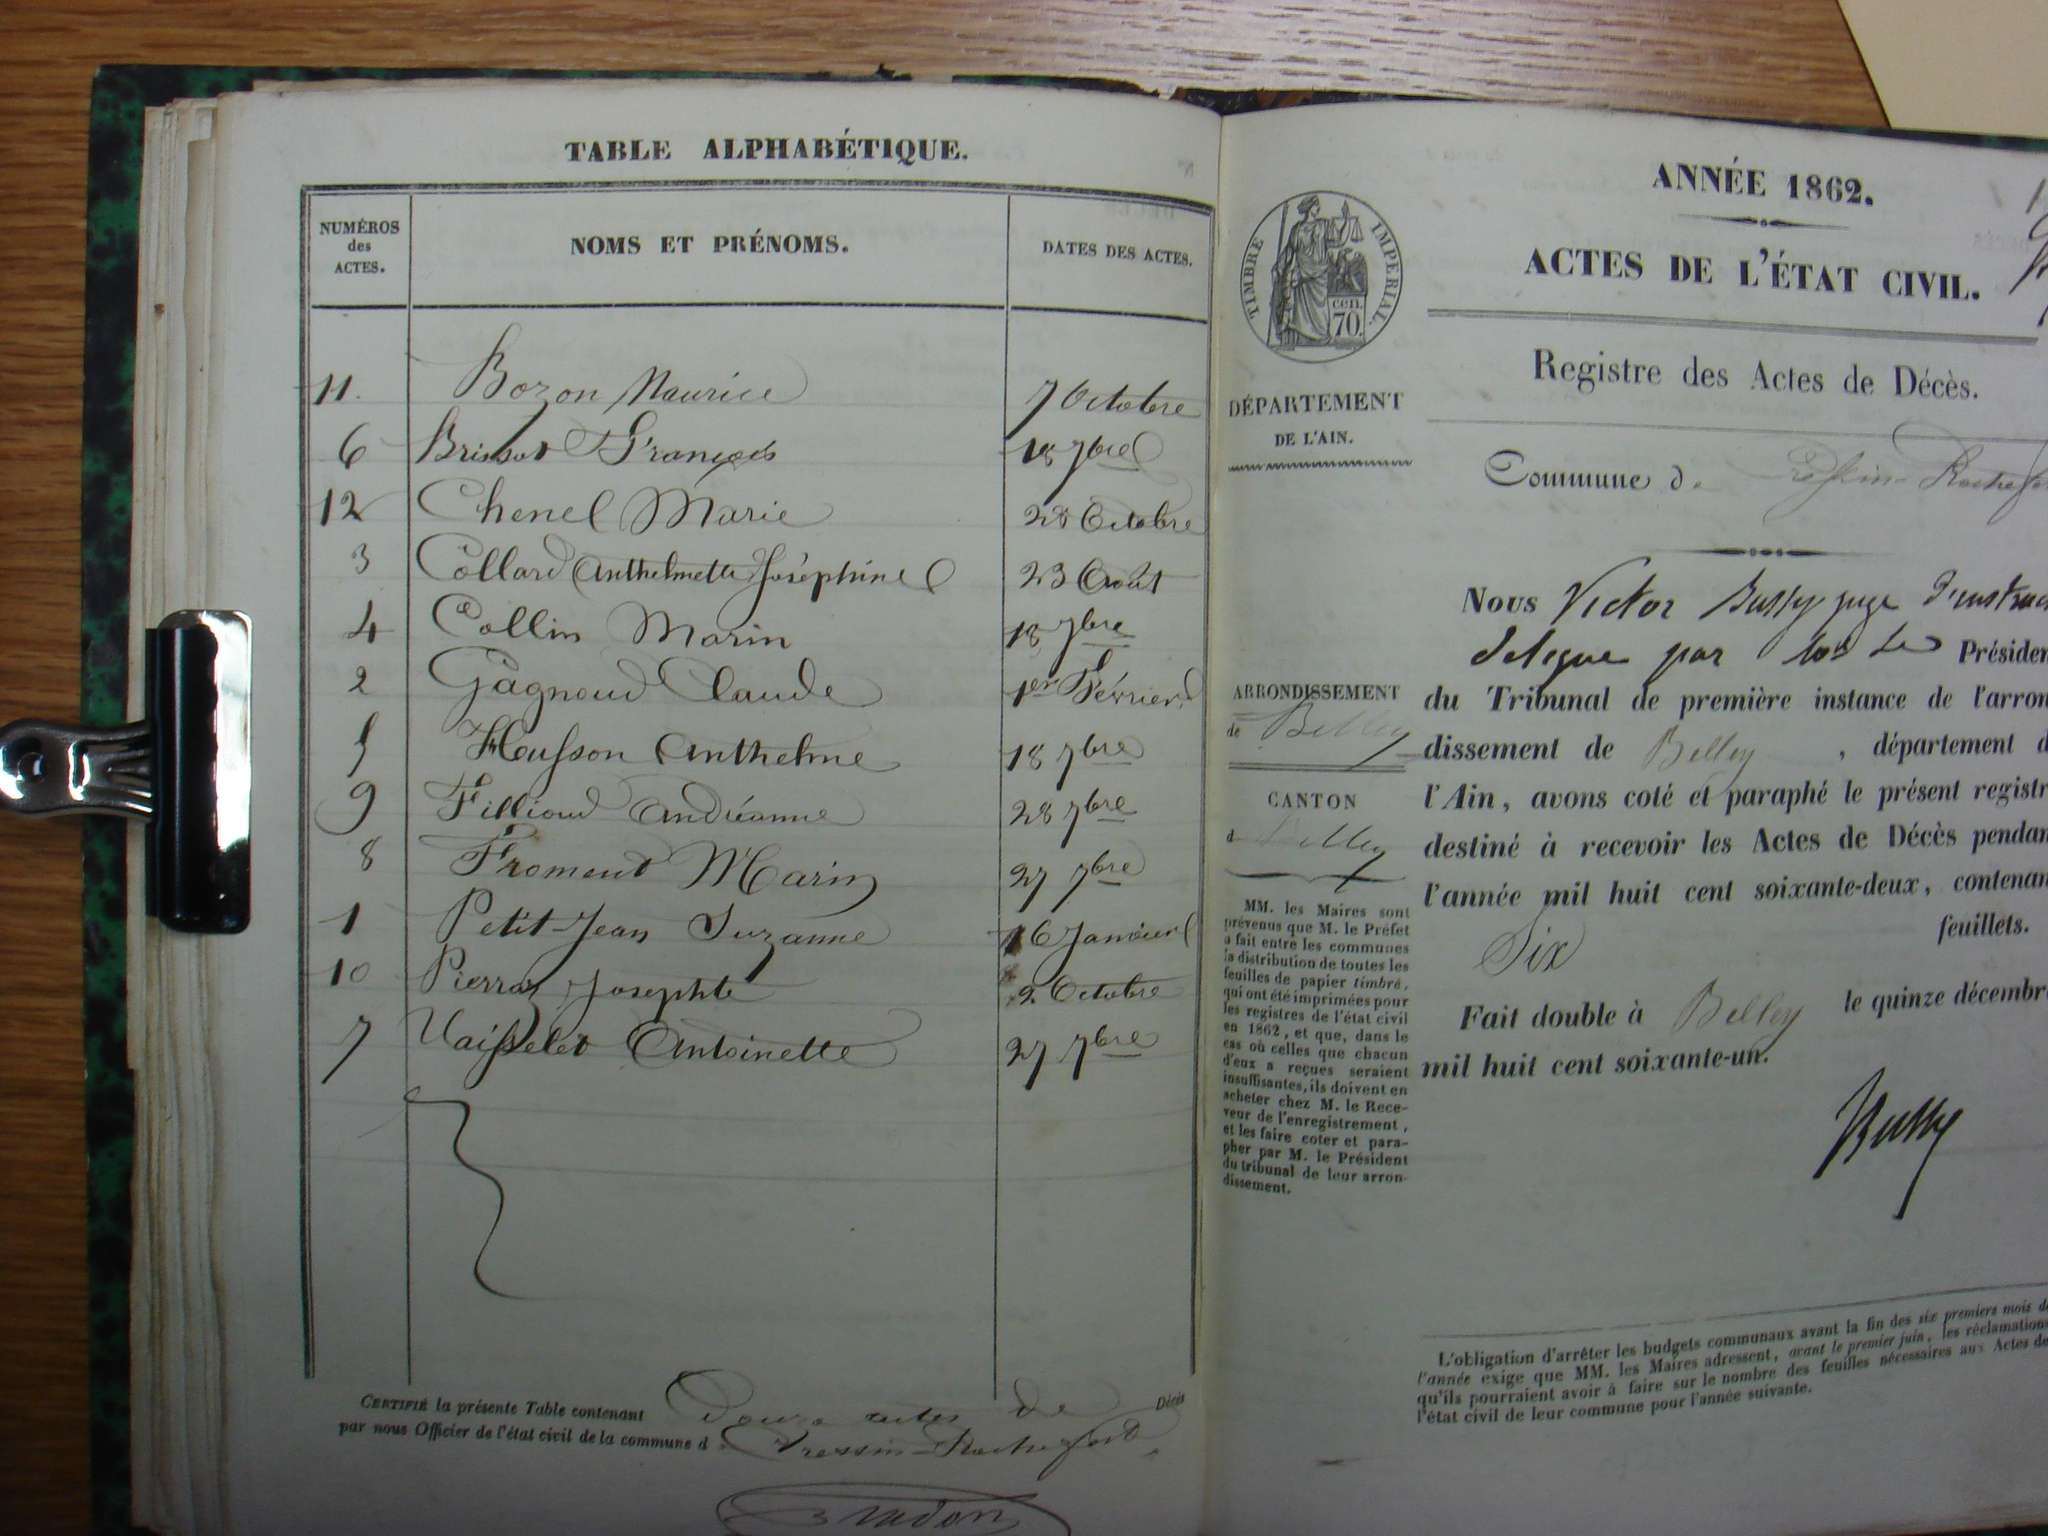 TABLE ALPHABÉTIQUE.
NUMÉROS
des
ACTES.
NOMS ET PRÉNOMS.
DATES DES ACTES.
11. Bozon Maurice 7 Octobre
6 Brissot François 18 7bre
12 Chenel Marie 28 Octobre
3 Collard Anthelmette Joséphine 23 Août
4 Collin Marin 18 7bre
2 Gagnoud Claude 1er Février
5 Husson Anthelme 18 7bre
9 Fillioud Andréanne 28 7bre
8 Froment Marin 27 7bre
1 Petit-Jean Suzanne 16 Janvier
10 Pierre Josephte 2 Octobre
7 Vaisselet Antoinette 27 7bre
CERTIFIÉ la présente Table contenant Douze actes de Décès
par nous Officier de l'état civil de la commune d Cressin-Rochefort
ANNÉE 1862.
ACTES DE L'ÉTAT CIVIL.
TIMBRE IMPÉRIAL.
cen.
70.
Registre des Actes de Décès.
DÉPARTEMENT
DE L'AIN.
Commune de Cressin Rochefor
ARRONDISSEMENT
de Belley
CANTON
d Belley
MM. les Maires sont
prévenus que M. le Préfet
a fait entre les communes
la distribution de toutes les
feuilles de papier timbré,
qui ont été imprimées pour
les registres de l'état civil
en 1862, et que, dans le
cas où celles que chacun
d'eux a reçues seraient
insuffisantes, ils doivent en
acheter chez M. le Rece-
veur de l'enregistrement,
et les faire coter et para-
pher par M. le Président
du tribunal de leur arron-
dissement.
Nous Victor Bussy juge d'instruc
delegue par Président
du Tribunal de première instance de l'arron
dissement de Belley, département d
l'Ain, avons coté et paraphé le présent registr
destiné à recevoir les Actes de Décès pendan
l'année mil huit cent soixante-deux, contenan
Six feuillets.
Fait double à Belley le quinze décembre
mil huit cent soixante-un.
Bussy
L'obligation d'arrêter les budgets communaux avant la fin des six premiers mois d
l'année exige que MM. les Maires adressent, avant le premier juin, les réclamations
qu'ils pourraient avoir à faire sur le nombre des feuilles nécessaires aux Actes de
l'état civil de leur commune pour l'année suivante.